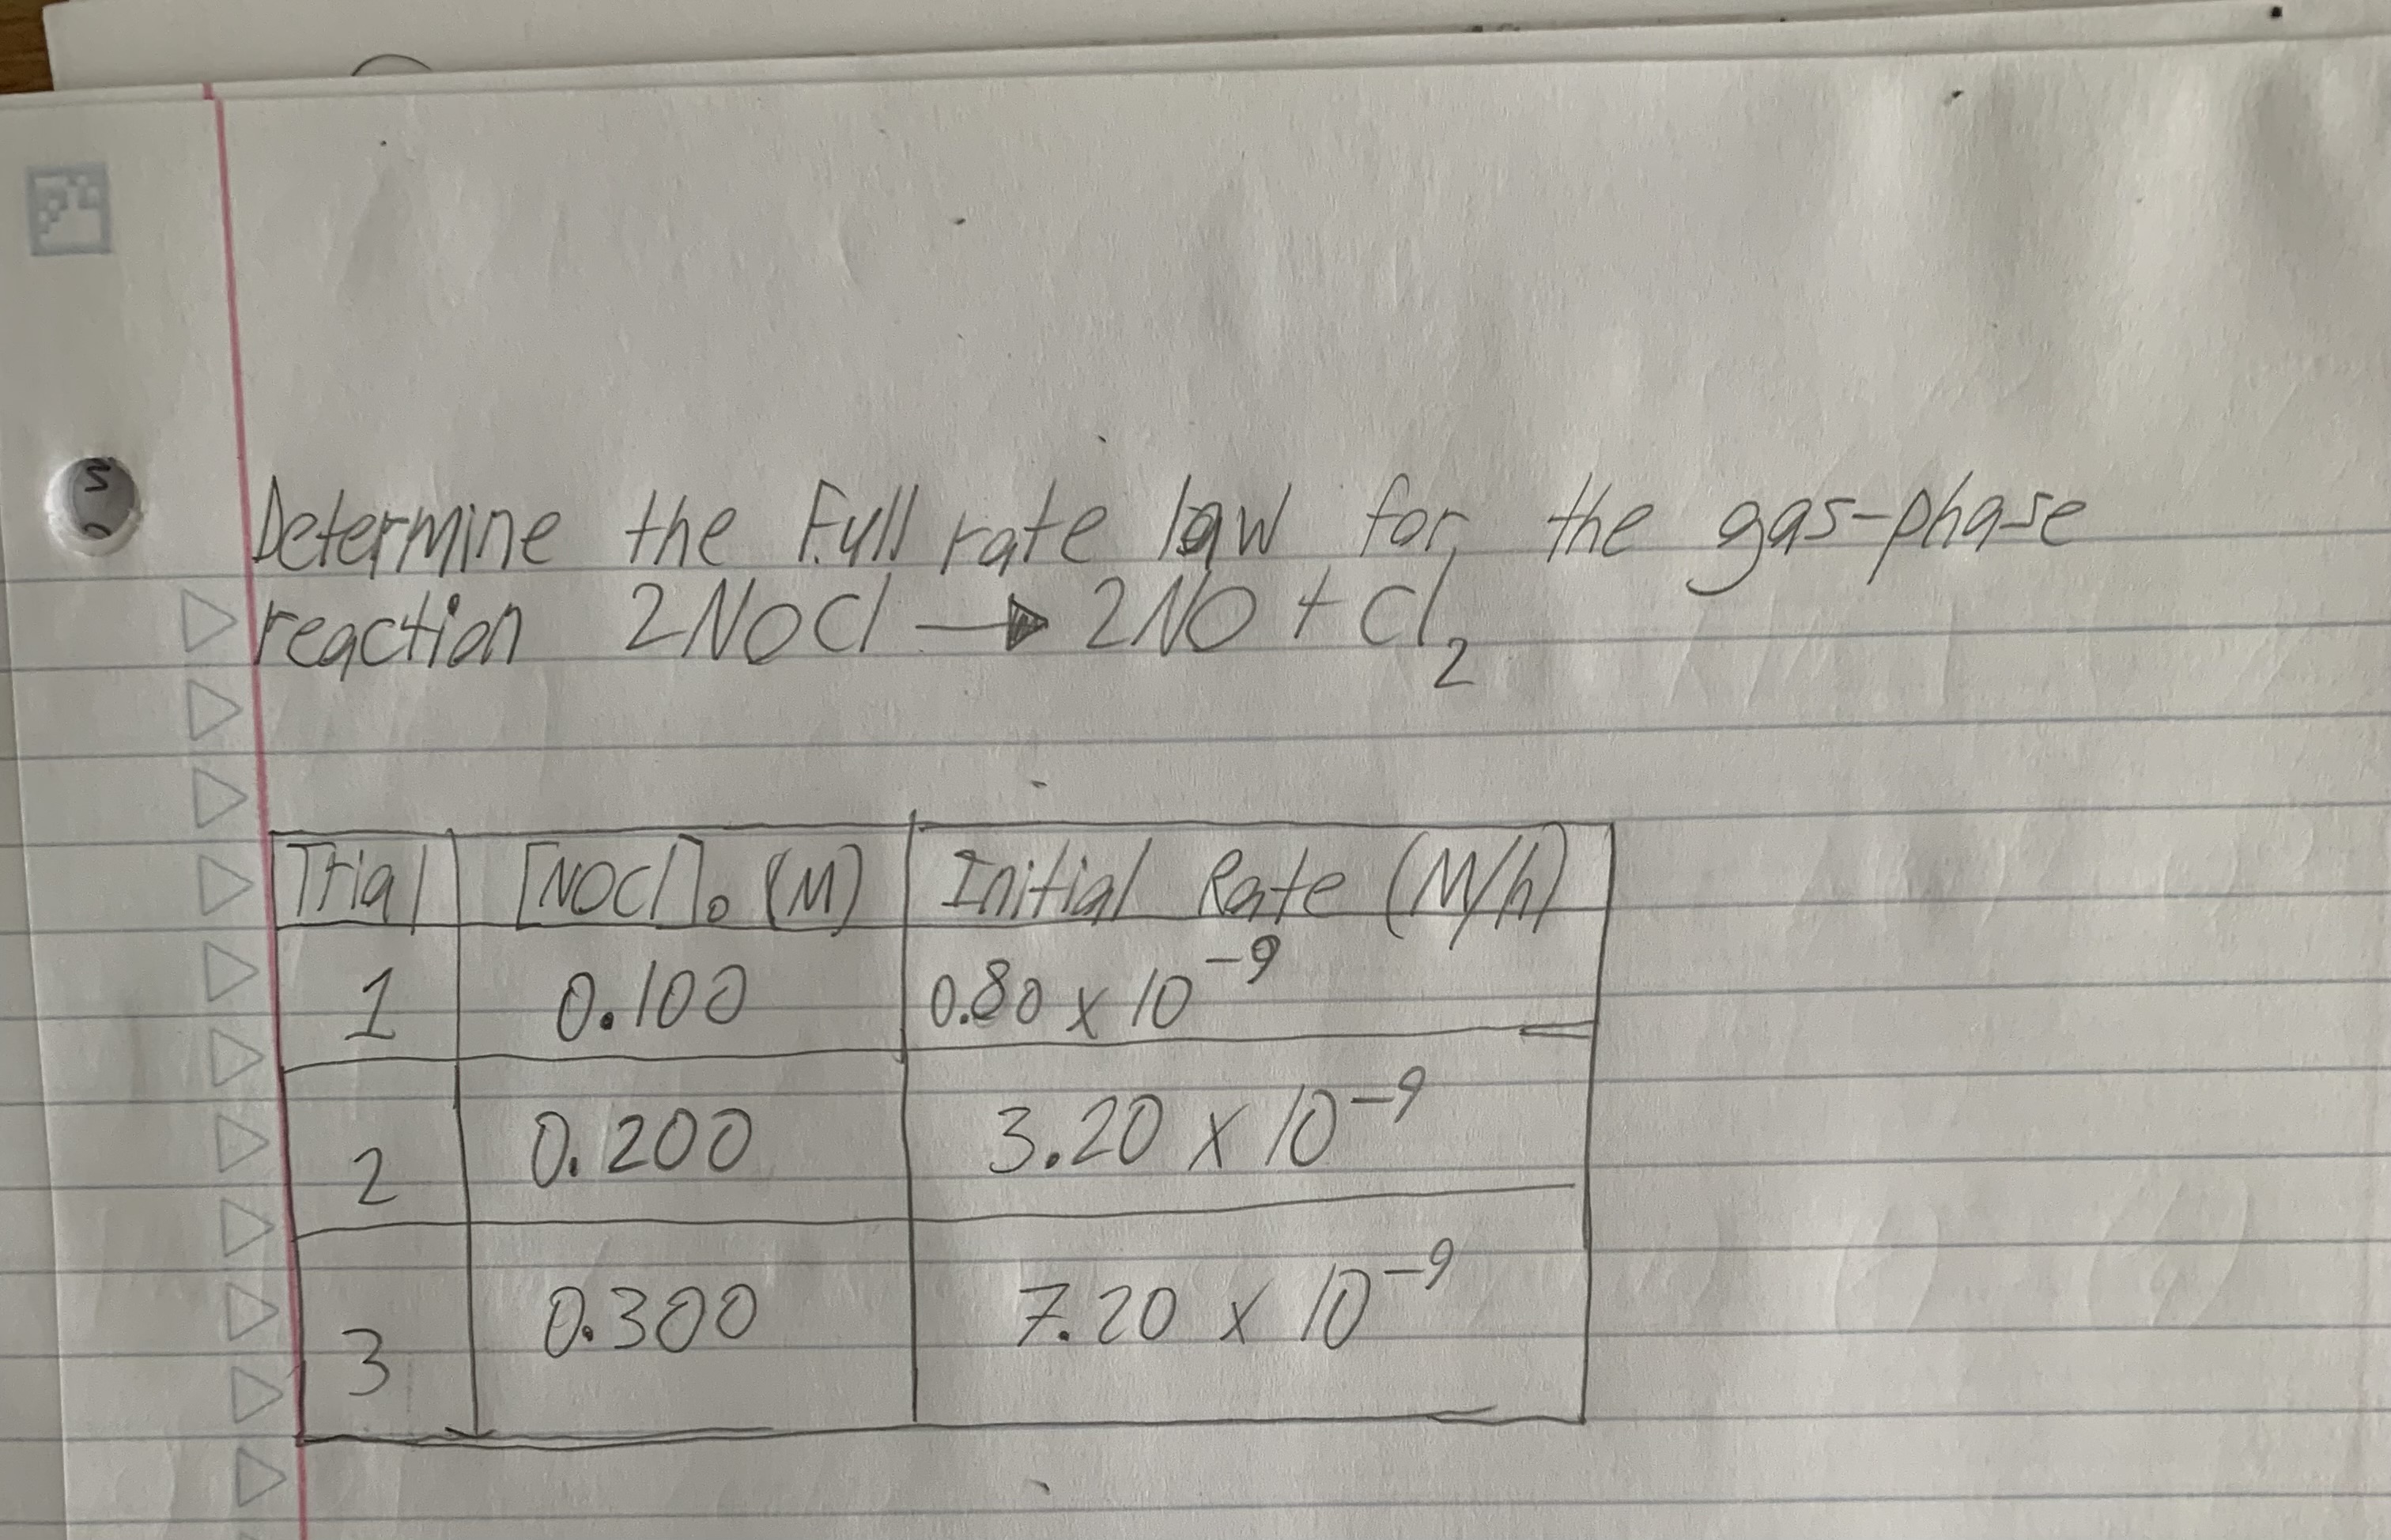 Determine the Full rate law for the gas-phase
reaction 2NOCl → 2NO + Cl₂
Trial [NOCl]₀ (M) Initial Rate (M/h)
1 0.100 0.80 x 10⁻⁹
2 0.200 3.20 x 10⁻⁹
3 0.300 7.20 x 10⁻⁹